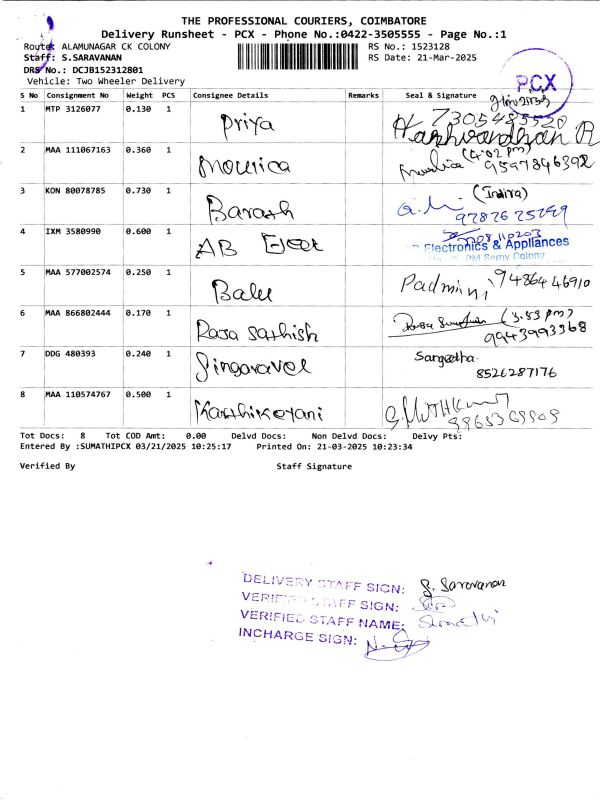 THE PROFESSIONAL COURIERS, COIMBATORE
Delivery Runsheet - PCX - Phone No.:0422-3505555 - Page No.:1
Route: ALAMUNAGAR CK COLONY RS No.: 1523128
Staff: S.SARAVANAN RS Date: 21-Mar-2025
DRS No.: DCJB152312801
Vehicle: Two Wheeler Delivery
PCX
S No Consignment No Weight PCS Consignee Details Remarks Seal & Signature
1 MTP 3126077 0.130 1 Priya 7305485520
Harshvardhan R
2 MAA 111067163 0.360 1 Mourica (4:02 pm)
9597846392
3 KON 80078785 0.730 1 Barath (Indira)
9787675299
4 IXM 3580990 0.600 1 AB Elect
Electronics & Appliances
Samy Colony
5 MAA 577002574 0.250 1 Balu Padmini 9486446910
6 MAA 866802444 0.170 1 Rasa Sathish (3.53 pm)
9943993368
7 DDG 480393 0.240 1 Singaravel Sangeetha
8526287176
8 MAA 110574767 0.500 1 Karthikeyani
Tot Docs: 8 Tot COD Amt: 0.00 Delvd Docs: Non Delvd Docs: Delvy Pts:
Entered By :SUMATHIPCX 03/21/2025 10:25:17 Printed On: 21-03-2025 10:23:34
Verified By Staff Signature
DELIVERY STAFF SIGN: S. Saravanan
VERIFIED STAFF SIGN:
VERIFIED STAFF NAME:
INCHARGE SIGN: